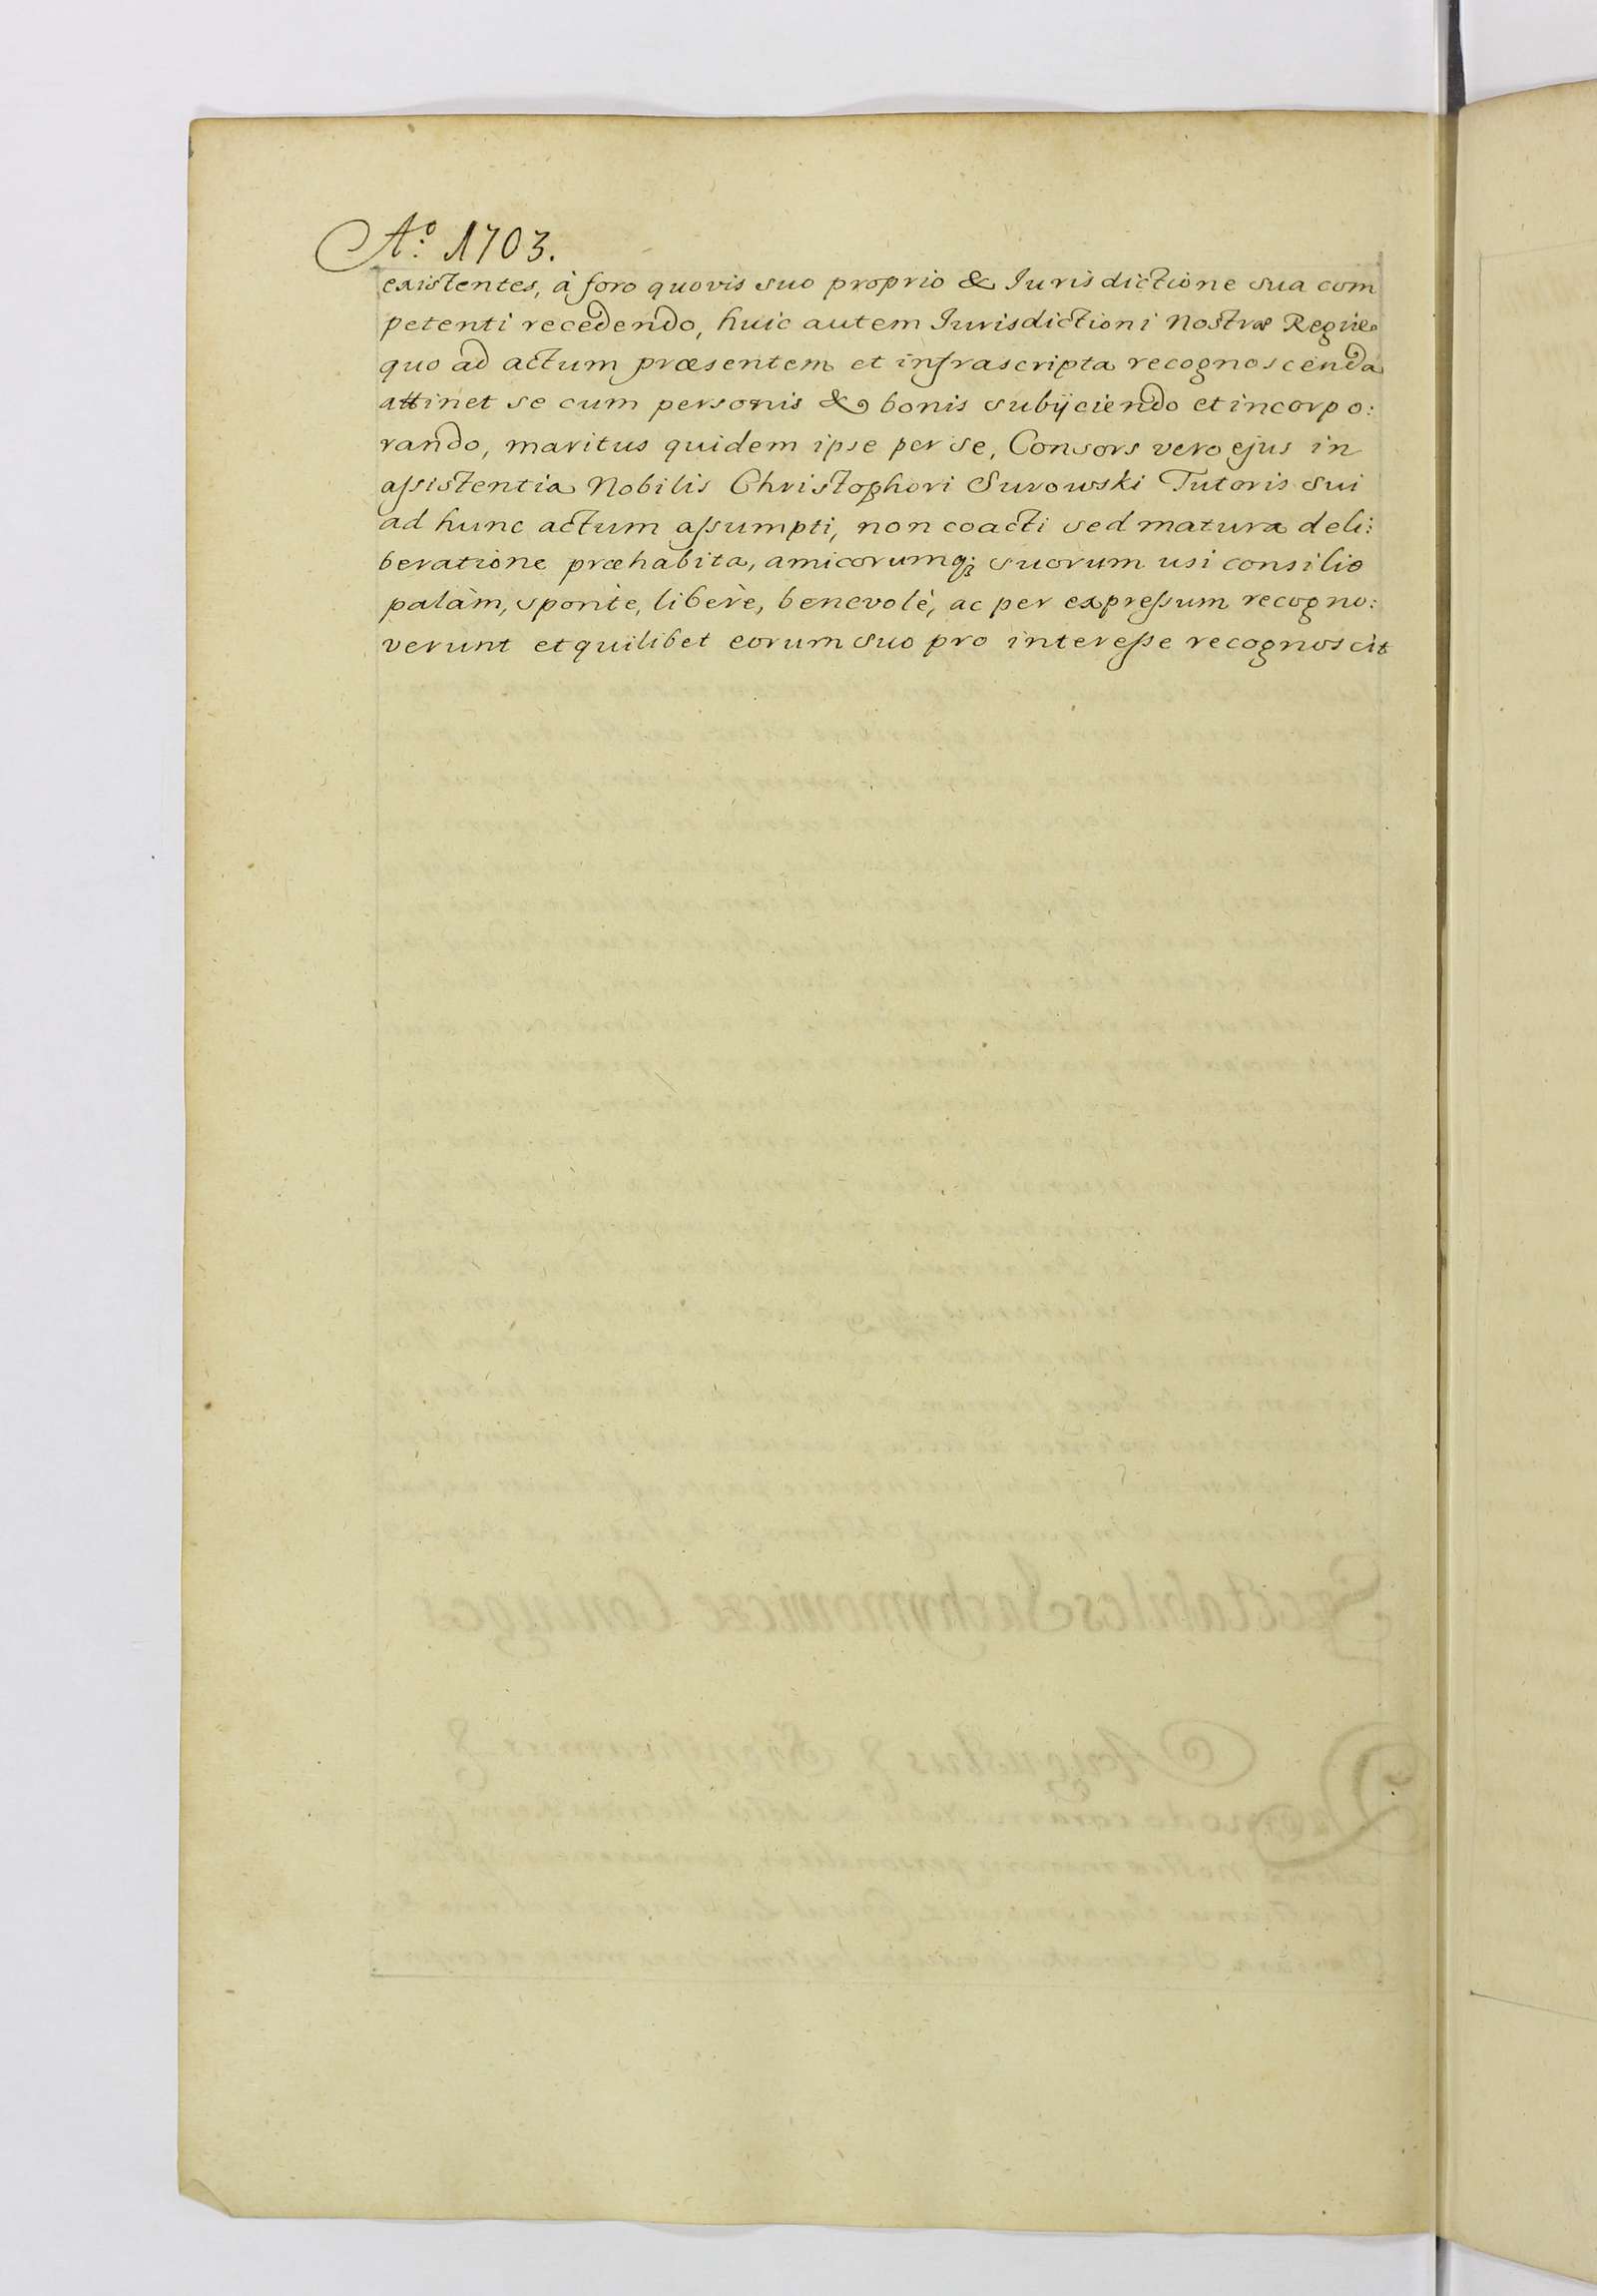 Aº. 1703.
existentes, à foro quovis suo proprio & Iurisdictione sua com
petenti recedendo, huic autem Iurisdictioni Nostræ Regiæ
quo ad actum præsentem et infrascripta recognoscenda
attinet se cum personis & bonis subijciendo et incorpo:
rando, maritus quidem ipse per se, Consors vero ejus in
assistentia Nobilis Christophori Surowski Tutoris sui
ad hunc actum assumpti, non coacti sed matura deli:
beratione præhabita, amicorumq; suorum usi consilio
palàm, spontè, liberè, benevolè, ac per expressum recogno:
verunt et quilibet eorum suo pro interesse recognoscit